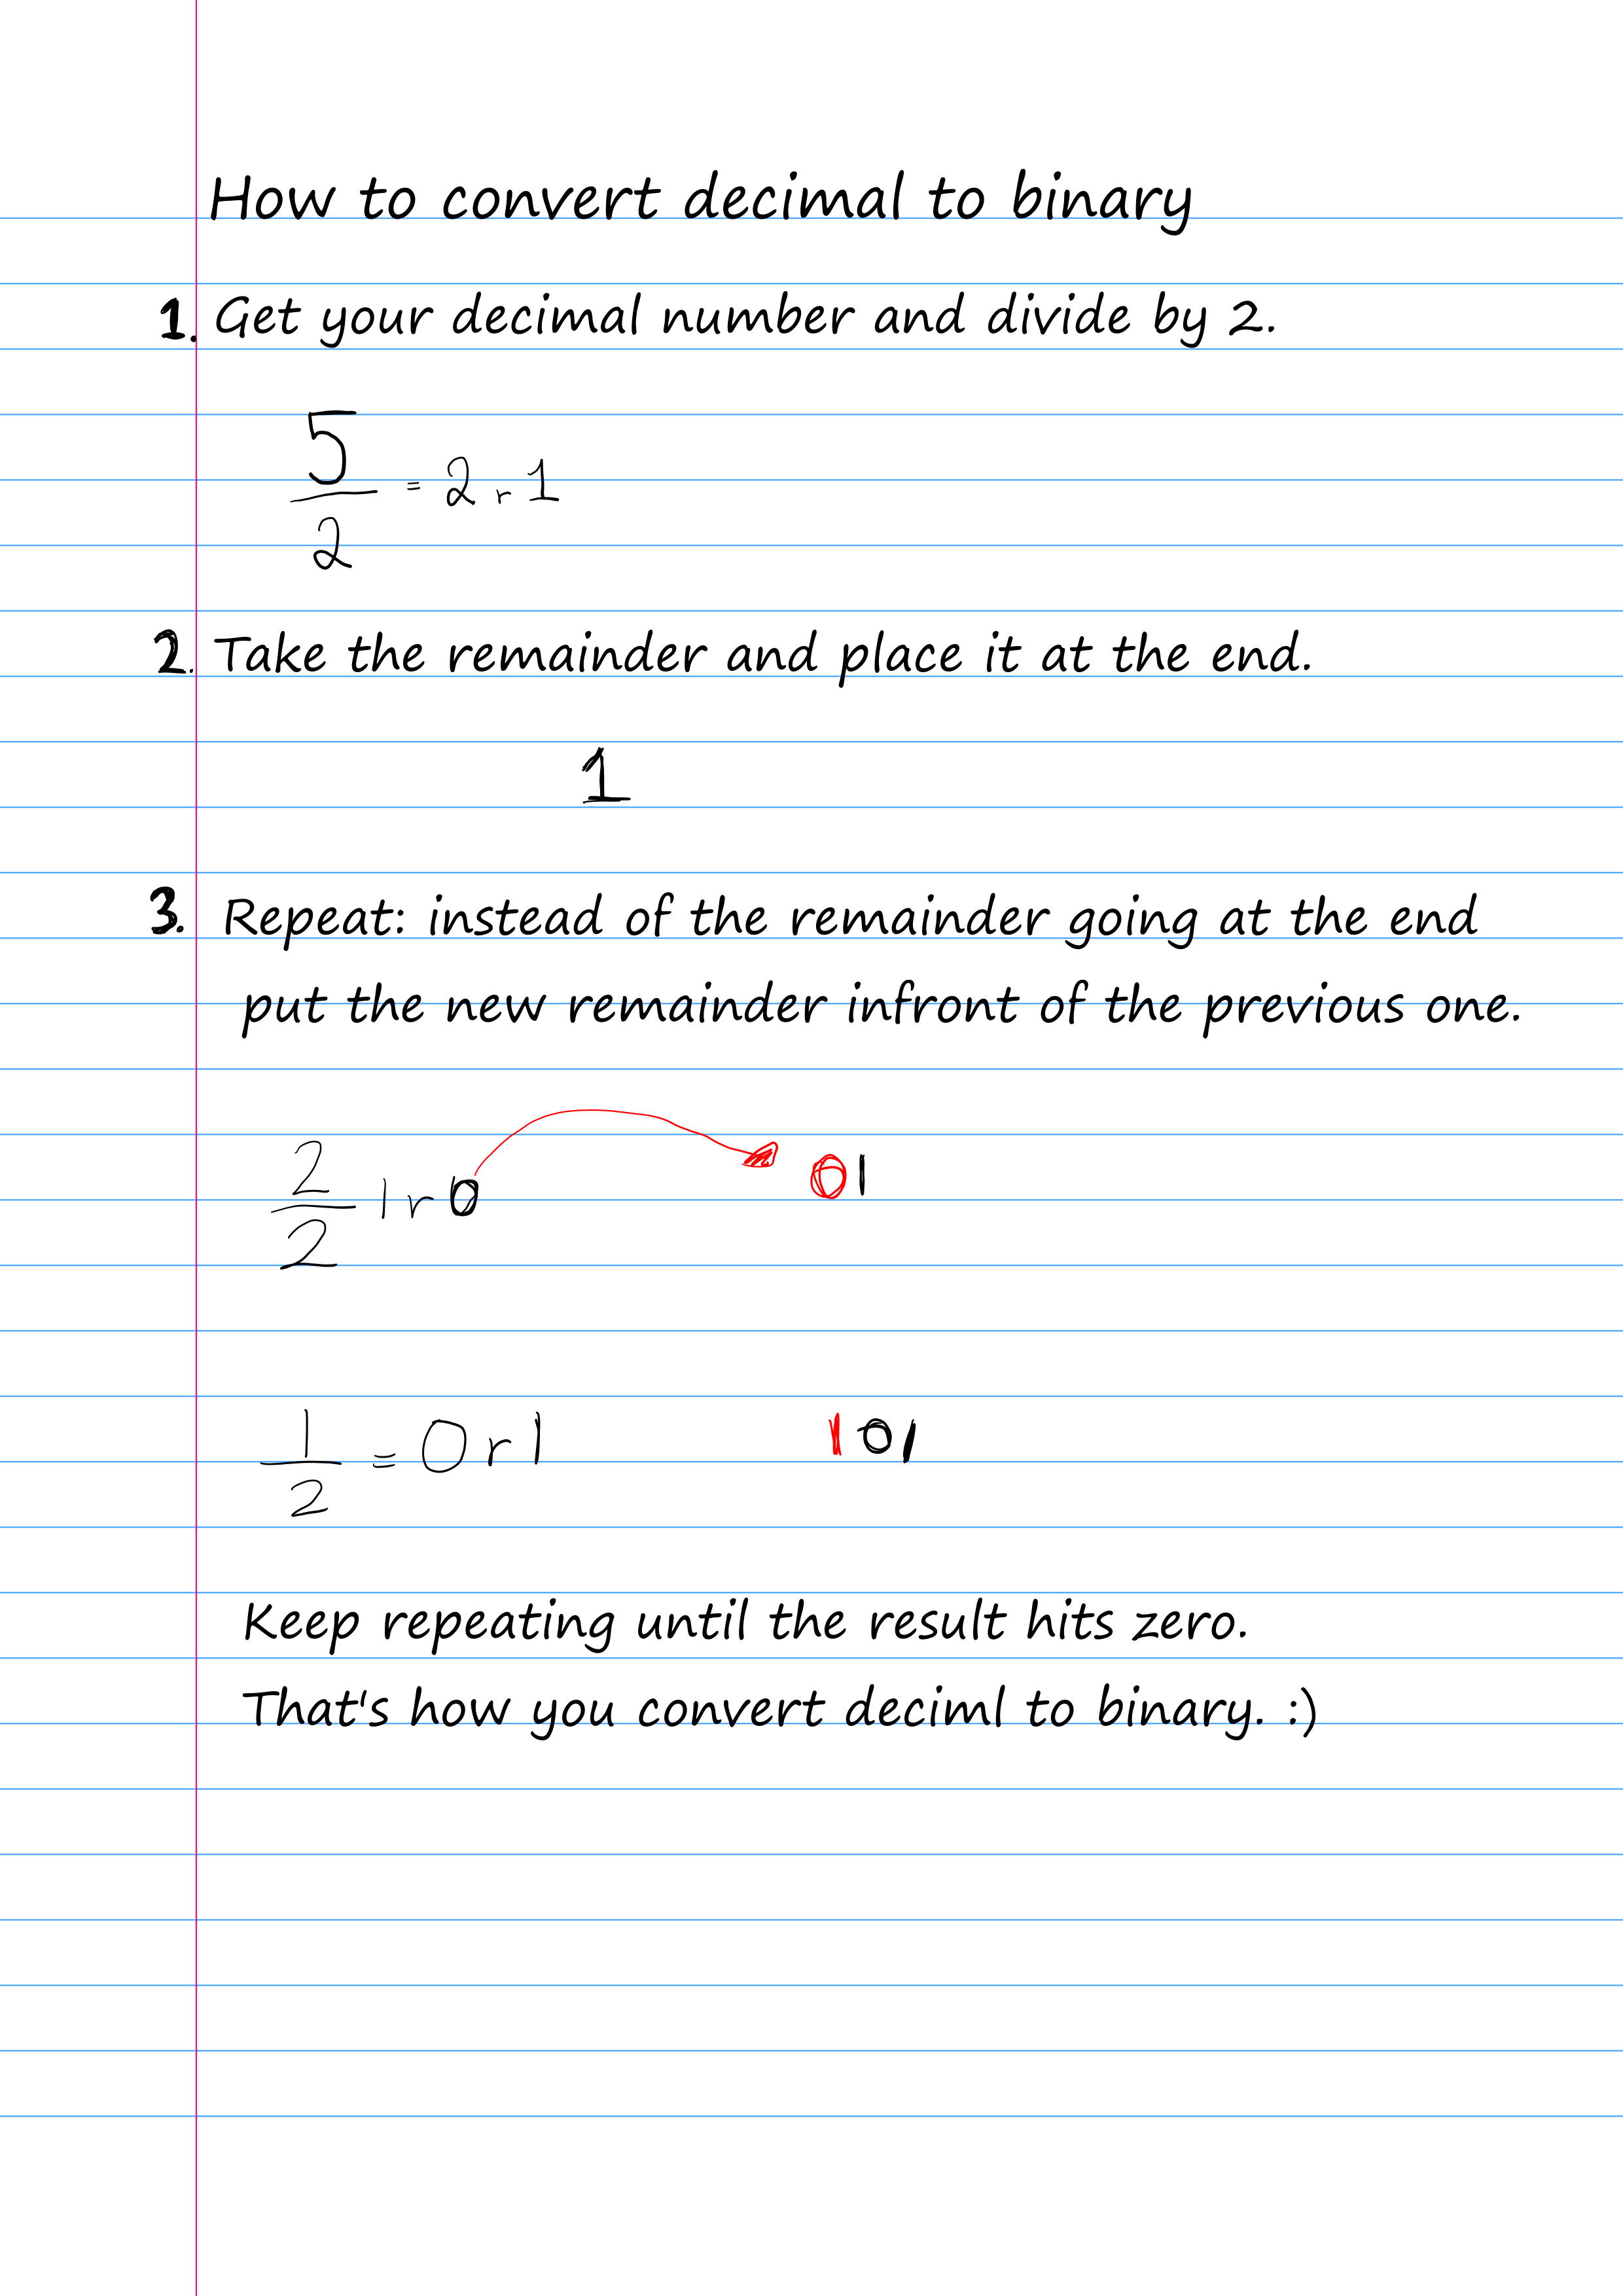 How to convert decimal to binary
1. Get your decimal number and divide by 2.
5
= 2 r 1
2
2. Take the remainder and place it at the end.
1
3. Repeat: instead of the remainder going at the end
put the new remainder infront of the previous one.
2
1 r 0 01
2
1
= 0 r 1 101
2
Keep repeating until the result hits zero.
That's how you convert deciml to binary. :)